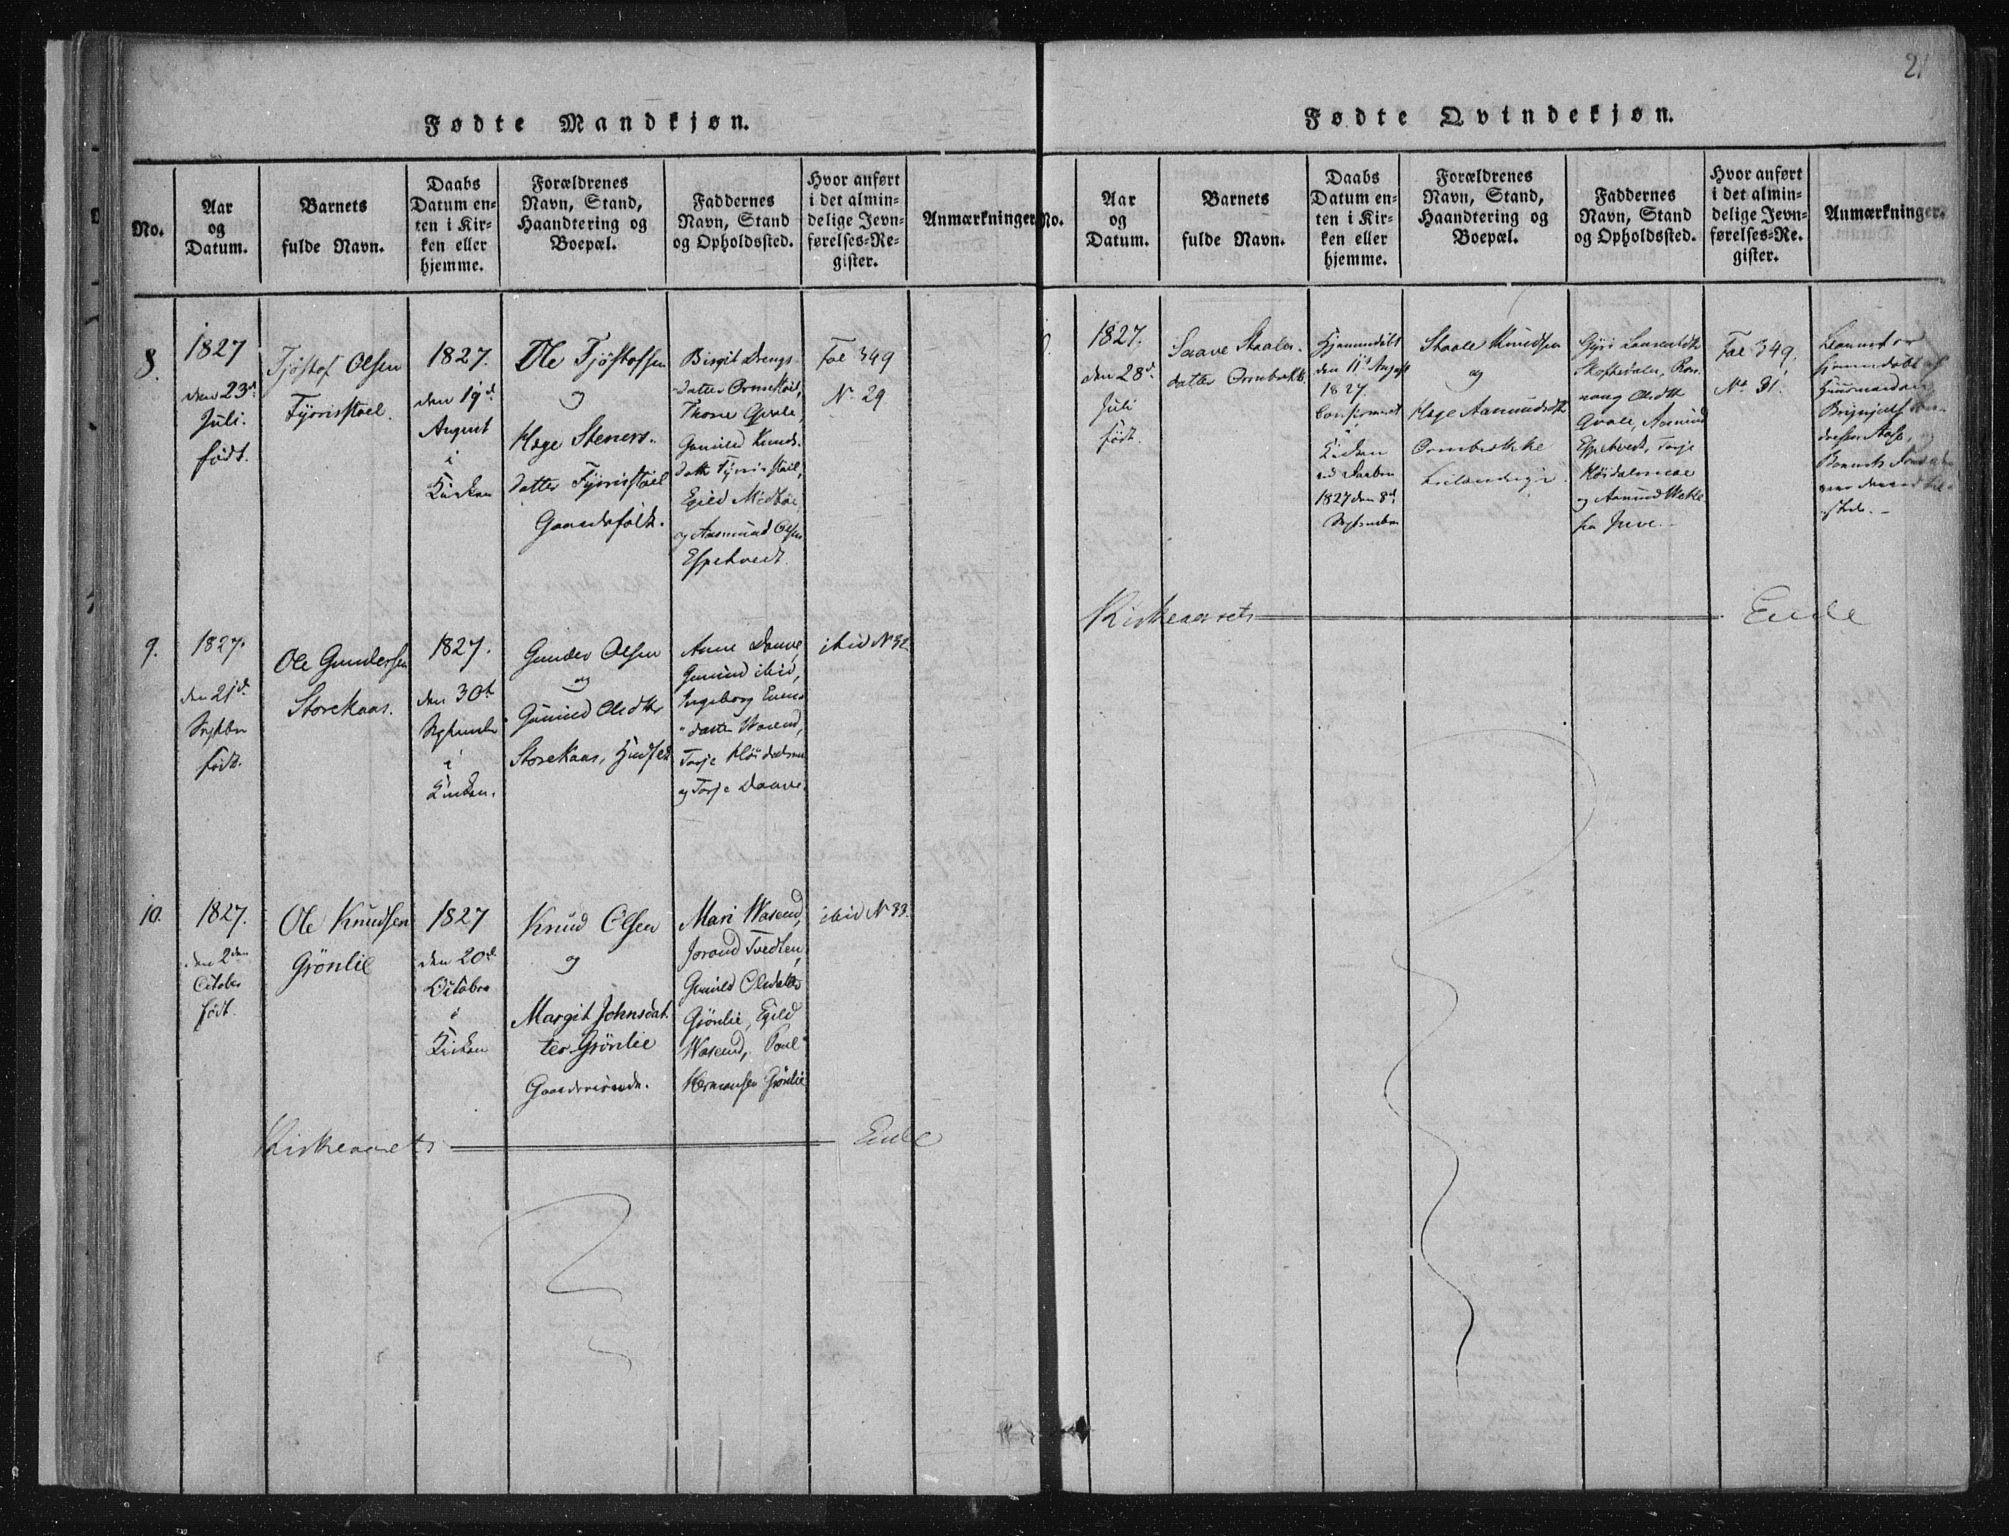 21
Fødte Mandkjøn.
No.
Aar
og
Datum.
Barnets
fulde Navn.
Daabs
Datum en-
ten i Kir-
ken eller
hjemme.
Forældrenes
Navn, Stand,
Haandtering og
Boepæl.
Faddernes
Navn, Stand
og Opholdssted.
Hvor anført
i det almin-
delige Jevn-
førelses-Re-
gister.
Anmærkninger.
8.
1827
den 23d
Juli.
født.
Tjøstof Olsen
Tyrisstøel.
1827.
den 19d
August
i
Kirken
Ole Tjøstofsen
og
Hæge Steners-
datter Tyrisstøel
Gaardfolk.
Birgit Drengs-
datter
Thone Qvale,
Gunild Knuds-
datt. Tyrisstøel,
Egild Midbøe
og Aasmund Olsen
Espetvedt.
Fol 349
N. 29
9.
1827.
den 21d
Septbr
født.
Ole Gundersen
Storekaas.
1827.
den 30t
Septembr
i
Kirken.
Gunder Olsen
og
Gunild Oledtr
Storekaas,
Anne Daave,
Gunild ibid,
Ingeborg
datter Wasend,
Torje Høidalsmoe
og Torje Daave.
ibid N 32
10.
1827.
den 2den
October
født.
Ole Knudsen
Grönlie
1827
den 20d
Octobre
i
Kirken
Knud Olsen
og
Margit Johnsdat-
ter Grönlie
Mari Wasend,
Jorand Tvedten,
Gunild Olsdatter
Grönlie, Egild
Wasend, Poul
Hermansen Grönlie
ibid N 33.
Kirkeaarets Ende
Fødte Qvindekjøn.
No.
Aar
og
Datum.
Barnets
fulde Navn.
Daabs
Datum en-
ten i Kir-
ken eller
hjemme.
Forældrenes
Navn, Stand,
Haandtering og
Boepæl.
Faddernes
Navn, Stand
og Opholdssted.
Hvor anført
i det almin-
delige Jevn-
førelses-Re-
gister.
Anmærkninger.
1827.
den 28d
Juli
født.
Saave Staales-
datter
Hjemmedøbt
den 11t August
1827.
i
Kirken
1827 den 8d
Septembr
Staale Knudsen
og
Hæge Aasmundsdtr
Skoftedalen, Ron-
noug Olsdtr
Qvale, Aasmund
Espetvedt, Torje
Høidalsmoe
og Aasmund
fra Juve.
Fol 349.
No 31.
Barnet er
hjemmedøbt af
Kirkeaarets Ende